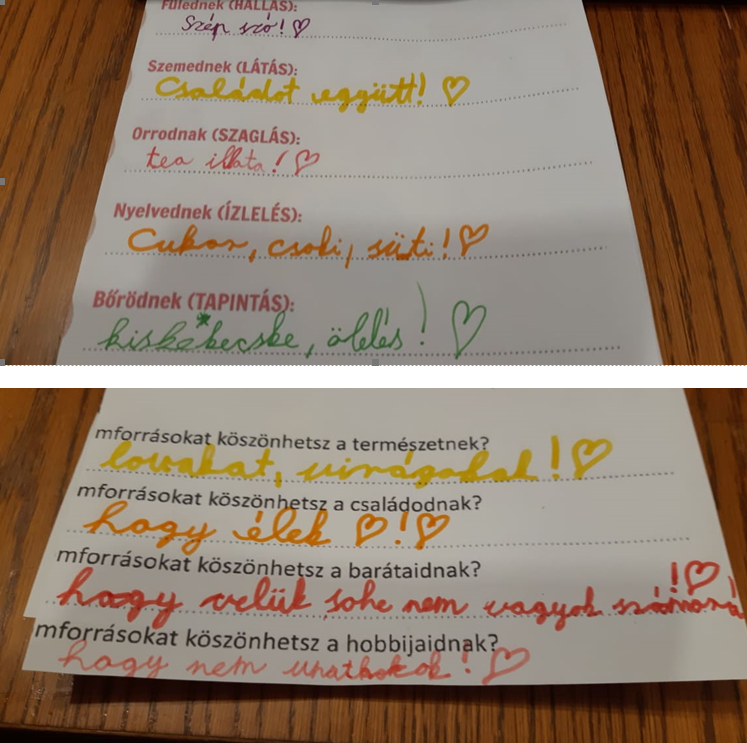 Fülednek (HALLÁS):
Szép szó! ♡
Szemednek (LÁTÁS):
Családot együtt! ♡
Orrodnak (SZAGLÁS):
tea illata! ♡
Nyelvednek (ÍZLELÉS):
Cukor, csoki, süti! ♡
Bőrödnek (TAPINTÁS):
kiskecske, ölelés! ♡
mforrásokat köszönhetsz a természetnek?
lovakat, virágokat! ♡
mforrásokat köszönhetsz a családodnak?
hogy élek ♡!♡
mforrásokat köszönhetsz a barátaidnak?
hogy velük soha nem vagyok !♡
mforrásokat köszönhetsz a hobbijaidnak?
hogy nem unatkozok! ♡